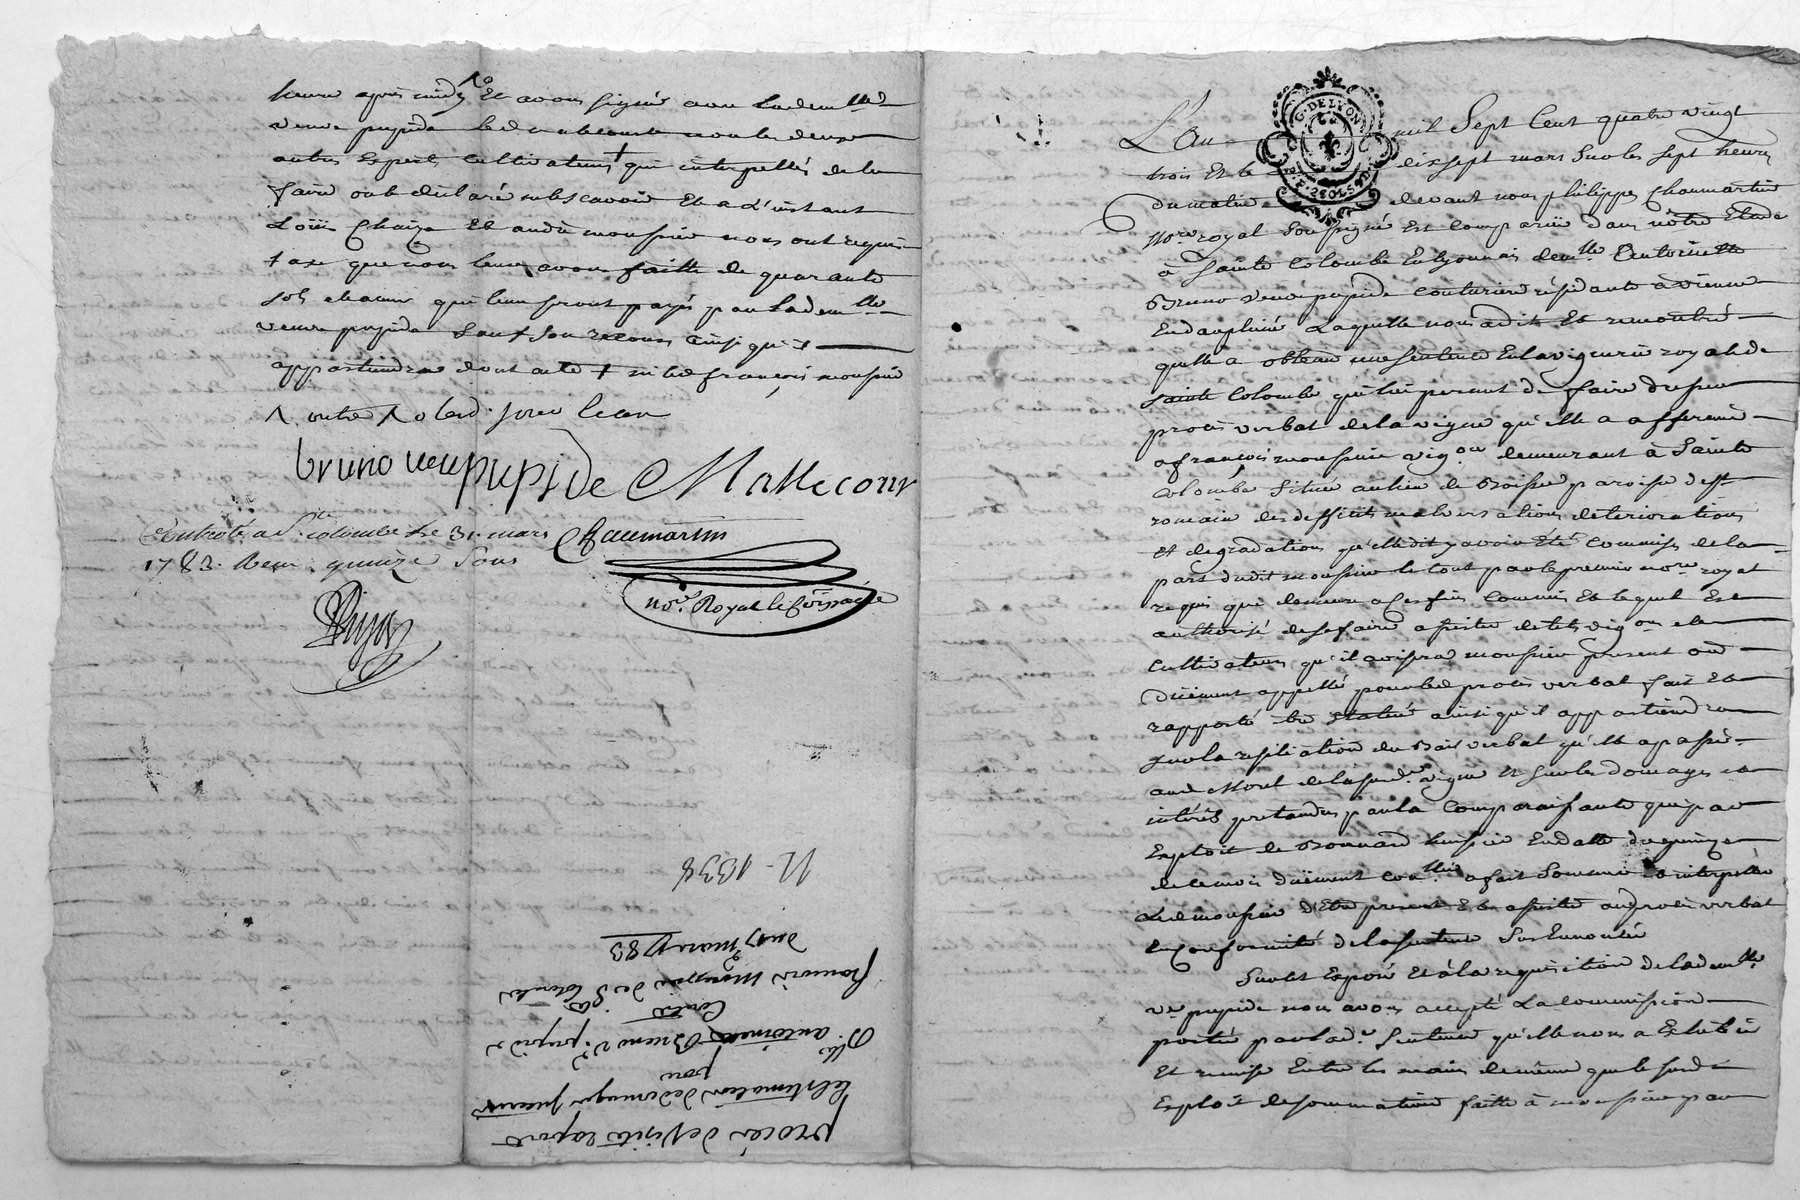 heure après midy Et avons signé avec lade. dlle
veuve pupide led. mallecourt non les deux
autres Experts cultivateurs + qui interpellés de le
faire ont déclaré ne le scavoir Et a L'instant
Loüis Chaize Et andré monssieu nous ont requis
taxe que nous leurs avons faitte de quarante
sols chacun qui leur seront payés par Lade. dlle
veuve pupide sauf son recours ainsi qu'il
appartiendra dont acte + ni led françois monssieu
bruno veuve pupide Mallecour
Controlé a Ste colombe le 31. mars
1783. Recu quinze sous
Chaumartin
nore. Royal
L'an mil Sept Cent quatre vingt
trois Et le dixsept mars Sur les sept heures
du matin devant nous philippe Chaumartin
Nore royal Soussigné Est comparüe dans nôtre Etude
à Sainte Colombe En lyonnais demlle Antoinette
Bruno veuve pupide couturiere résidante à vienne
En dauphiné Laquelle nous a dit Et remontré
qu'elle a obtenu une sentence En la viguerie royale de
Sainte Colombe qui lui permet de faire dresser
procès verbal de la vigne qu'elle a affermé
a françois monssieu vigon demeurant à Sainte
Colombe Située au lieu de Boissey paroisse de St
romain des defficits malversations déteriorations
et degradations qu'elle dit y avoir Eté commises de la
part dudit monssieu le tout par le premier nore royal
requis qui demeure a ces fins commis Et lequel Est
authorisé de se faire assister de tels vigons et
cultivateurs qu'il avisera monssieu present où
düement appellé pour led procès verbal fait Et
rapporté être statué ainsi qu'il appartiendra
sur la resiliation du Bail verbal qu'elle a passé
aud. Mons. de la susd. vigne Et sur les domages et
intérêts pretendus par la Comparaissante que par
Exploit de Bonnard huissier En datte du quinze
de ce mois düement coallé a fait Sommer Et interpeller
Led monssieu d'Etre present Et assister au procès verbal
En Conformité de la sentence Sus Enoncée
Sur les Exposé Et à la requisition de lade. dlle
ve pupide nous avons accepté La commission
portée par lad. Sentence qu'elle nous a Exhibée
Et remise Entre les mains de même que le susd.
Exploit de sommation faitte à monssieu par
procès de Visite raport
Et Estimation de domages
pour
Dlle antoinette Bruno ve. pupide
Contre
francois Monssieu de Ste Colombe
du 17 mars 1783
11-1338